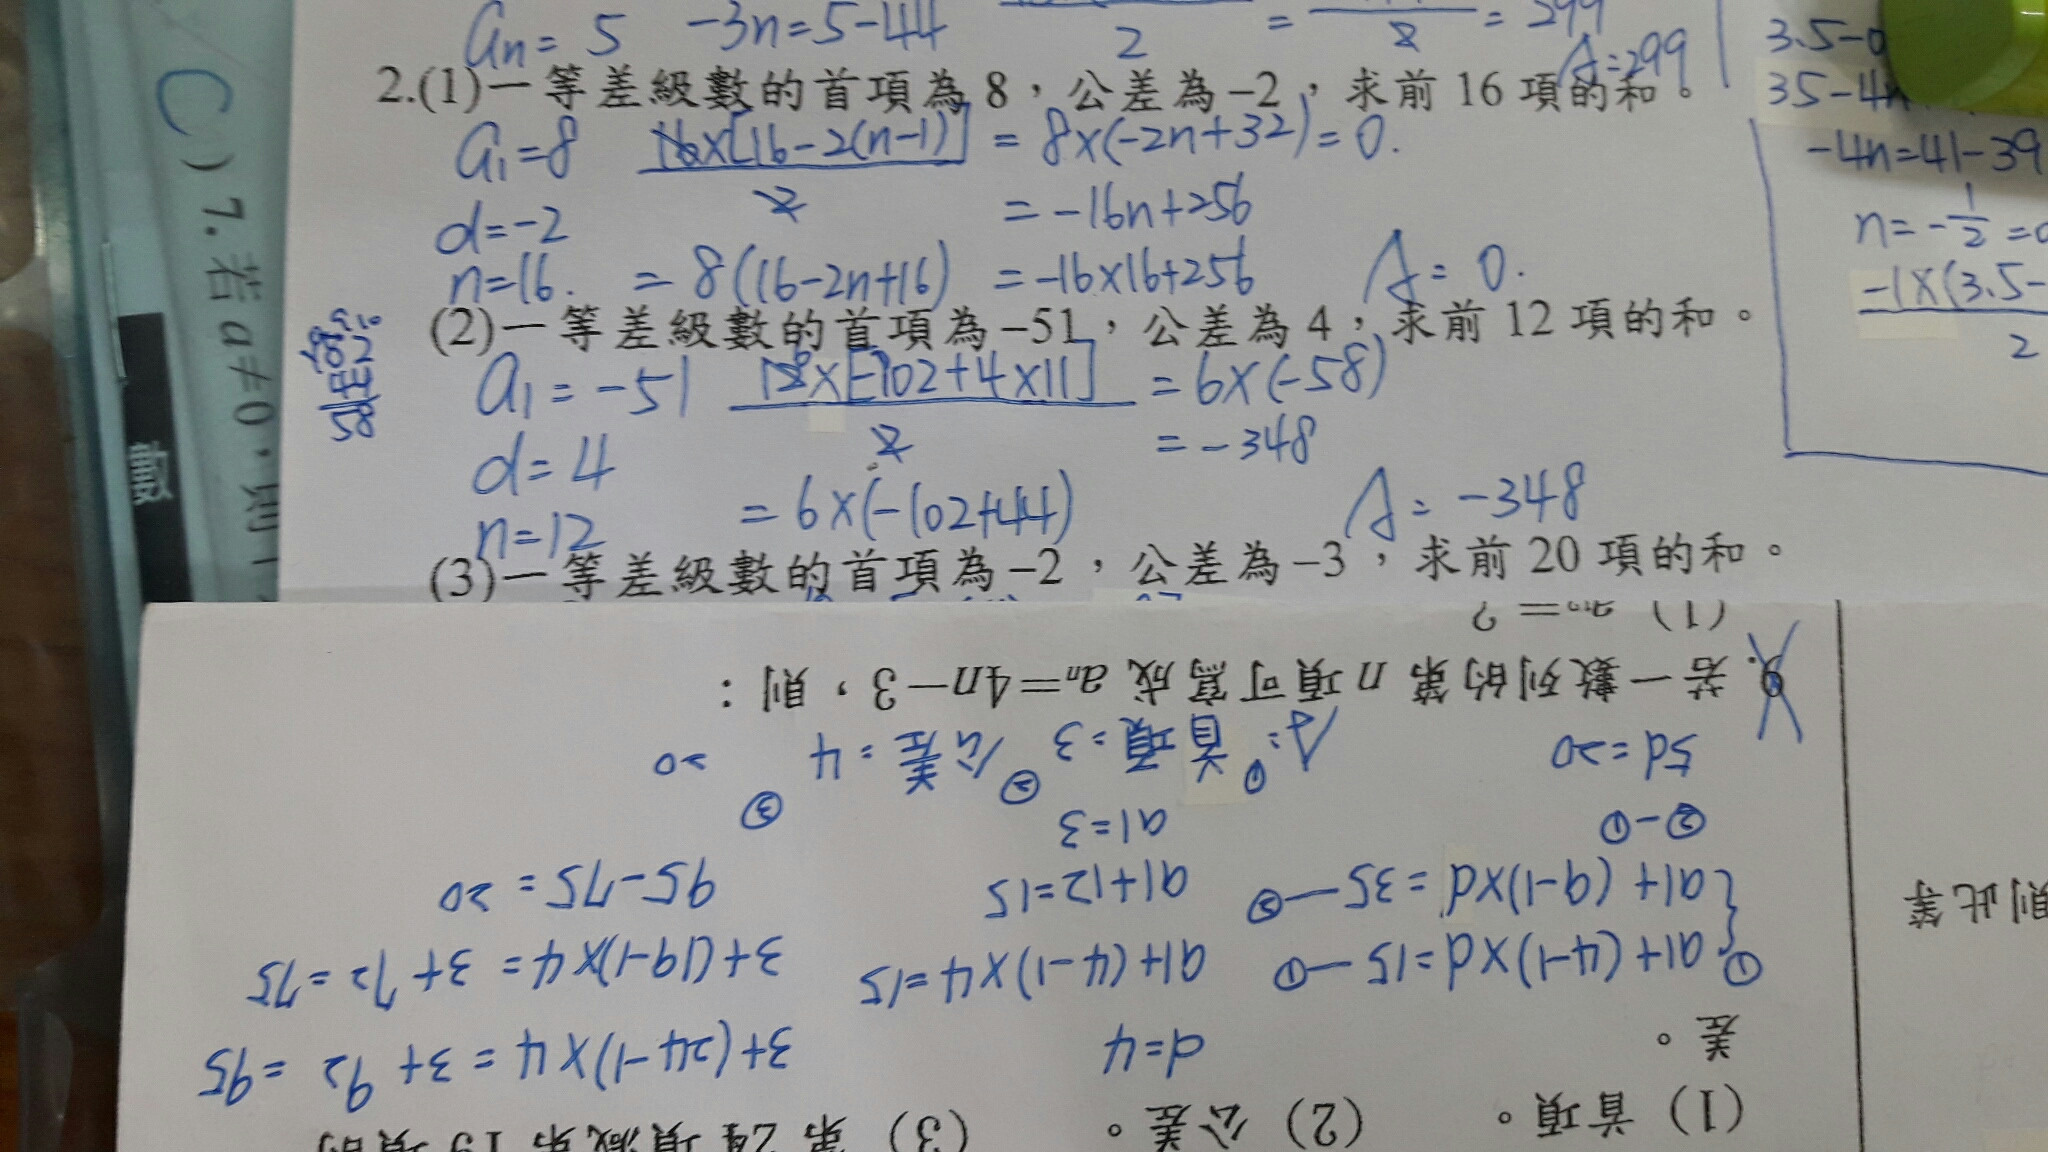 an = 5 -3n=5-44 2 = 2 = 299
A=299
2.(1)一等差級數的首項為 8，公差為 -2，求前 16 項的和。
a1=8 16×[16-2(n-1)] / 2 = 8×(-2n+32)=0.
d=-2 = -16n+256
n=16. = 8(16-2n+16) = -16×16+256 A=0.
(2)一等差級數的首項為 -51，公差為 4，求前 12 項的和。
a1 = -51 12×[-102+4×11] / 2 = 6×(-58)
= -348
d=4
n=12 = 6×(-102+44) A= -348
(3)一等差級數的首項為 -2，公差為 -3，求前 20 項的和。
3.5-
35-4n
-4n=41-39
n=-1/2=
-1×(3.5-
2
C ) 7. 若 a≠0，則
(1) 首項。 (2) 公差。 (3) 第 24 項減第 19 項的
差。
d=4 3+(24-1)×4 = 3+92 = 95
① { a1+(4-1)×d=15 —① a1+(4-1)×4=15 3+(19-1)×4 = 3+72 = 75
a1+(9-1)×d=35 —② a1+12=15 95-75=20
②-① a1=3
5d=20 A:①首項=3 ②公差=4 ③ 20
9. 若一數列的第 n 項可寫成 an=4n-3，則：
則此等